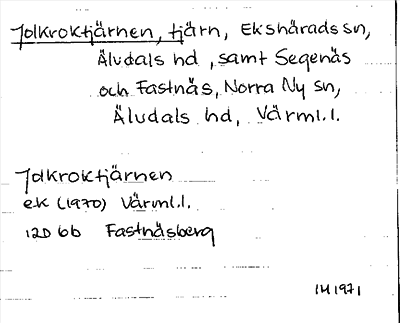 Jolkroktjärnen, tjärn, Ekshärads sn,
Älvdals hd, samt Segenäs
och Fastnäs, Norra Ny sn,
Älvdals hd, Värml.l.
Jolkroktjärnen
ek (1970) Värml.l.
12D 6b Fastnäsberg
IM 1971